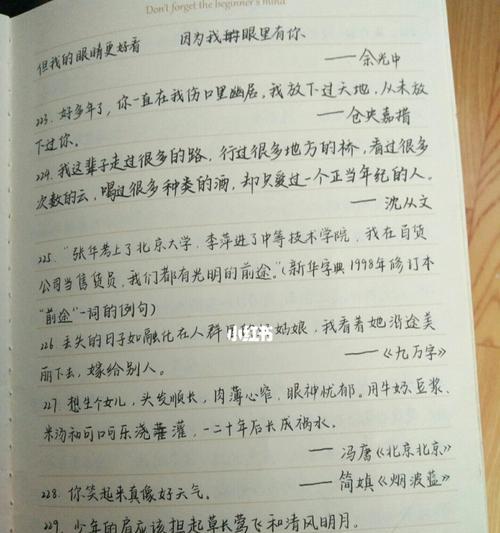 Don't forget the beginner's mind
但我的眼睛更好看 因为我眼里有你
——余光中
223. 好多年了，你一直在我伤口里幽居，我放下过天地，从未放
下过你。 ——仓央嘉措
224. 我这辈子走过很多的路，行过很多地方的桥，看过很多
次数的云，喝过很多种类的酒，却只爱过一个正当年纪的人。
——沈从文
225. “张华考上了北京大学，李萍进了中等技术学院，我在百货
公司当售货员，我们都有光明的前途。”（新华字典1998年修订本
“前途”一词的例句）
226 丢失的日子如融化在人群里 姑娘，我看着她沿途美
丽下去，嫁给别人。 ——《九万字》
227. 想生个女儿，头发顺长，肉薄心窄，眼神忧郁。用牛奶、豆浆、
米汤和可口可乐浇灌，一二十年后长成祸水。
——冯唐《北京北京》
228. 你笑起来真像好天气。 ——简媜《烟波蓝》
229. 少年的肩应该担起草长莺飞和清风明月。
小红书